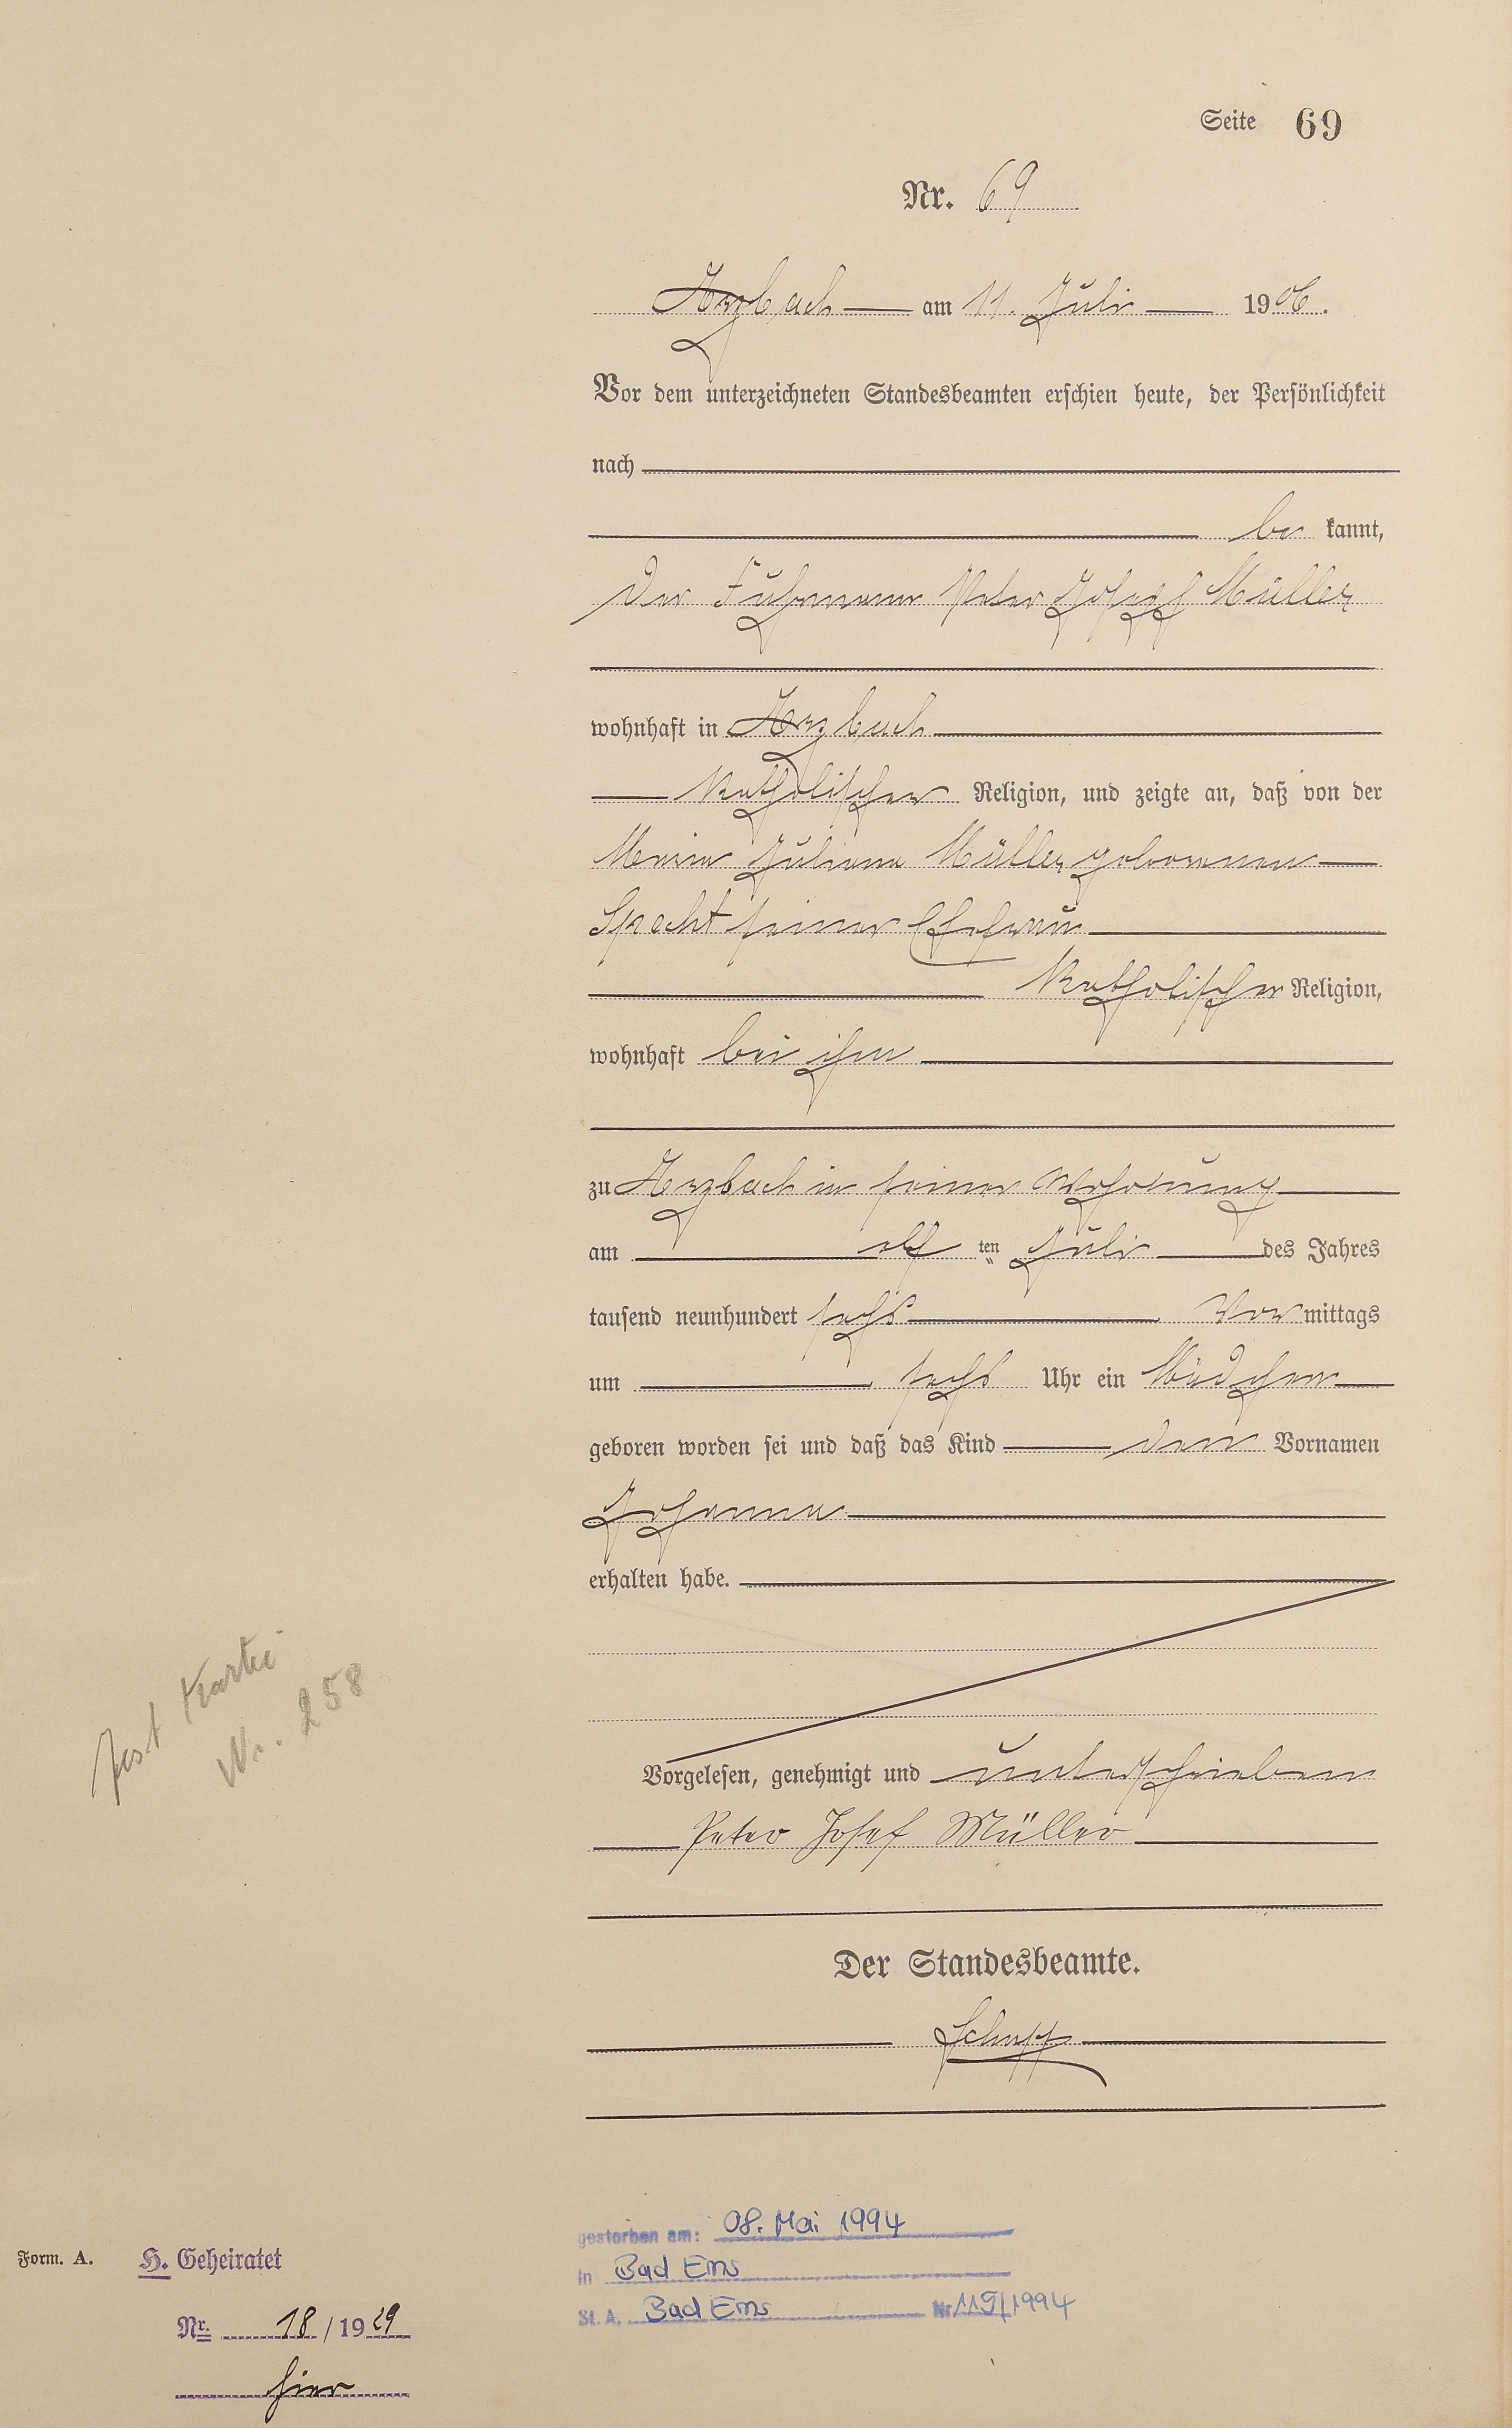 Seite 69
Nr. 69
Arzbach am 11. Juli 1906.
Vor dem unterzeichneten Standesbeamten erschien heute, der Persönlichkeit
nach
be kannt,
der Fuhrmann Peter Josef Müller
wohnhaft in Arzbach
katholischer Religion, und zeigte an, daß von der
Maria Juliana Müller geborenen
Specht seiner Ehefrau
katholischer Religion,
wohnhaft bei ihm
zu Arzbach in seiner Wohnung
am elf ten Juli des Jahres
tausend neunhundert sechs Vor mittags
um sechs Uhr ein Mädchen
geboren worden sei und daß das Kind den Vornamen
Johanna
erhalten habe.
Kartei
Nr. 258
Vorgelesen, genehmigt und unterschrieben
Peter Josef Müller
Der Standesbeamte.
Schupp
gestorben am: 08. Mai 1994
in Bad Ems
St. A. Bad Ems Nr. 119/1994
Form. A.
H. Geheiratet
Nr. 18/1929
hier